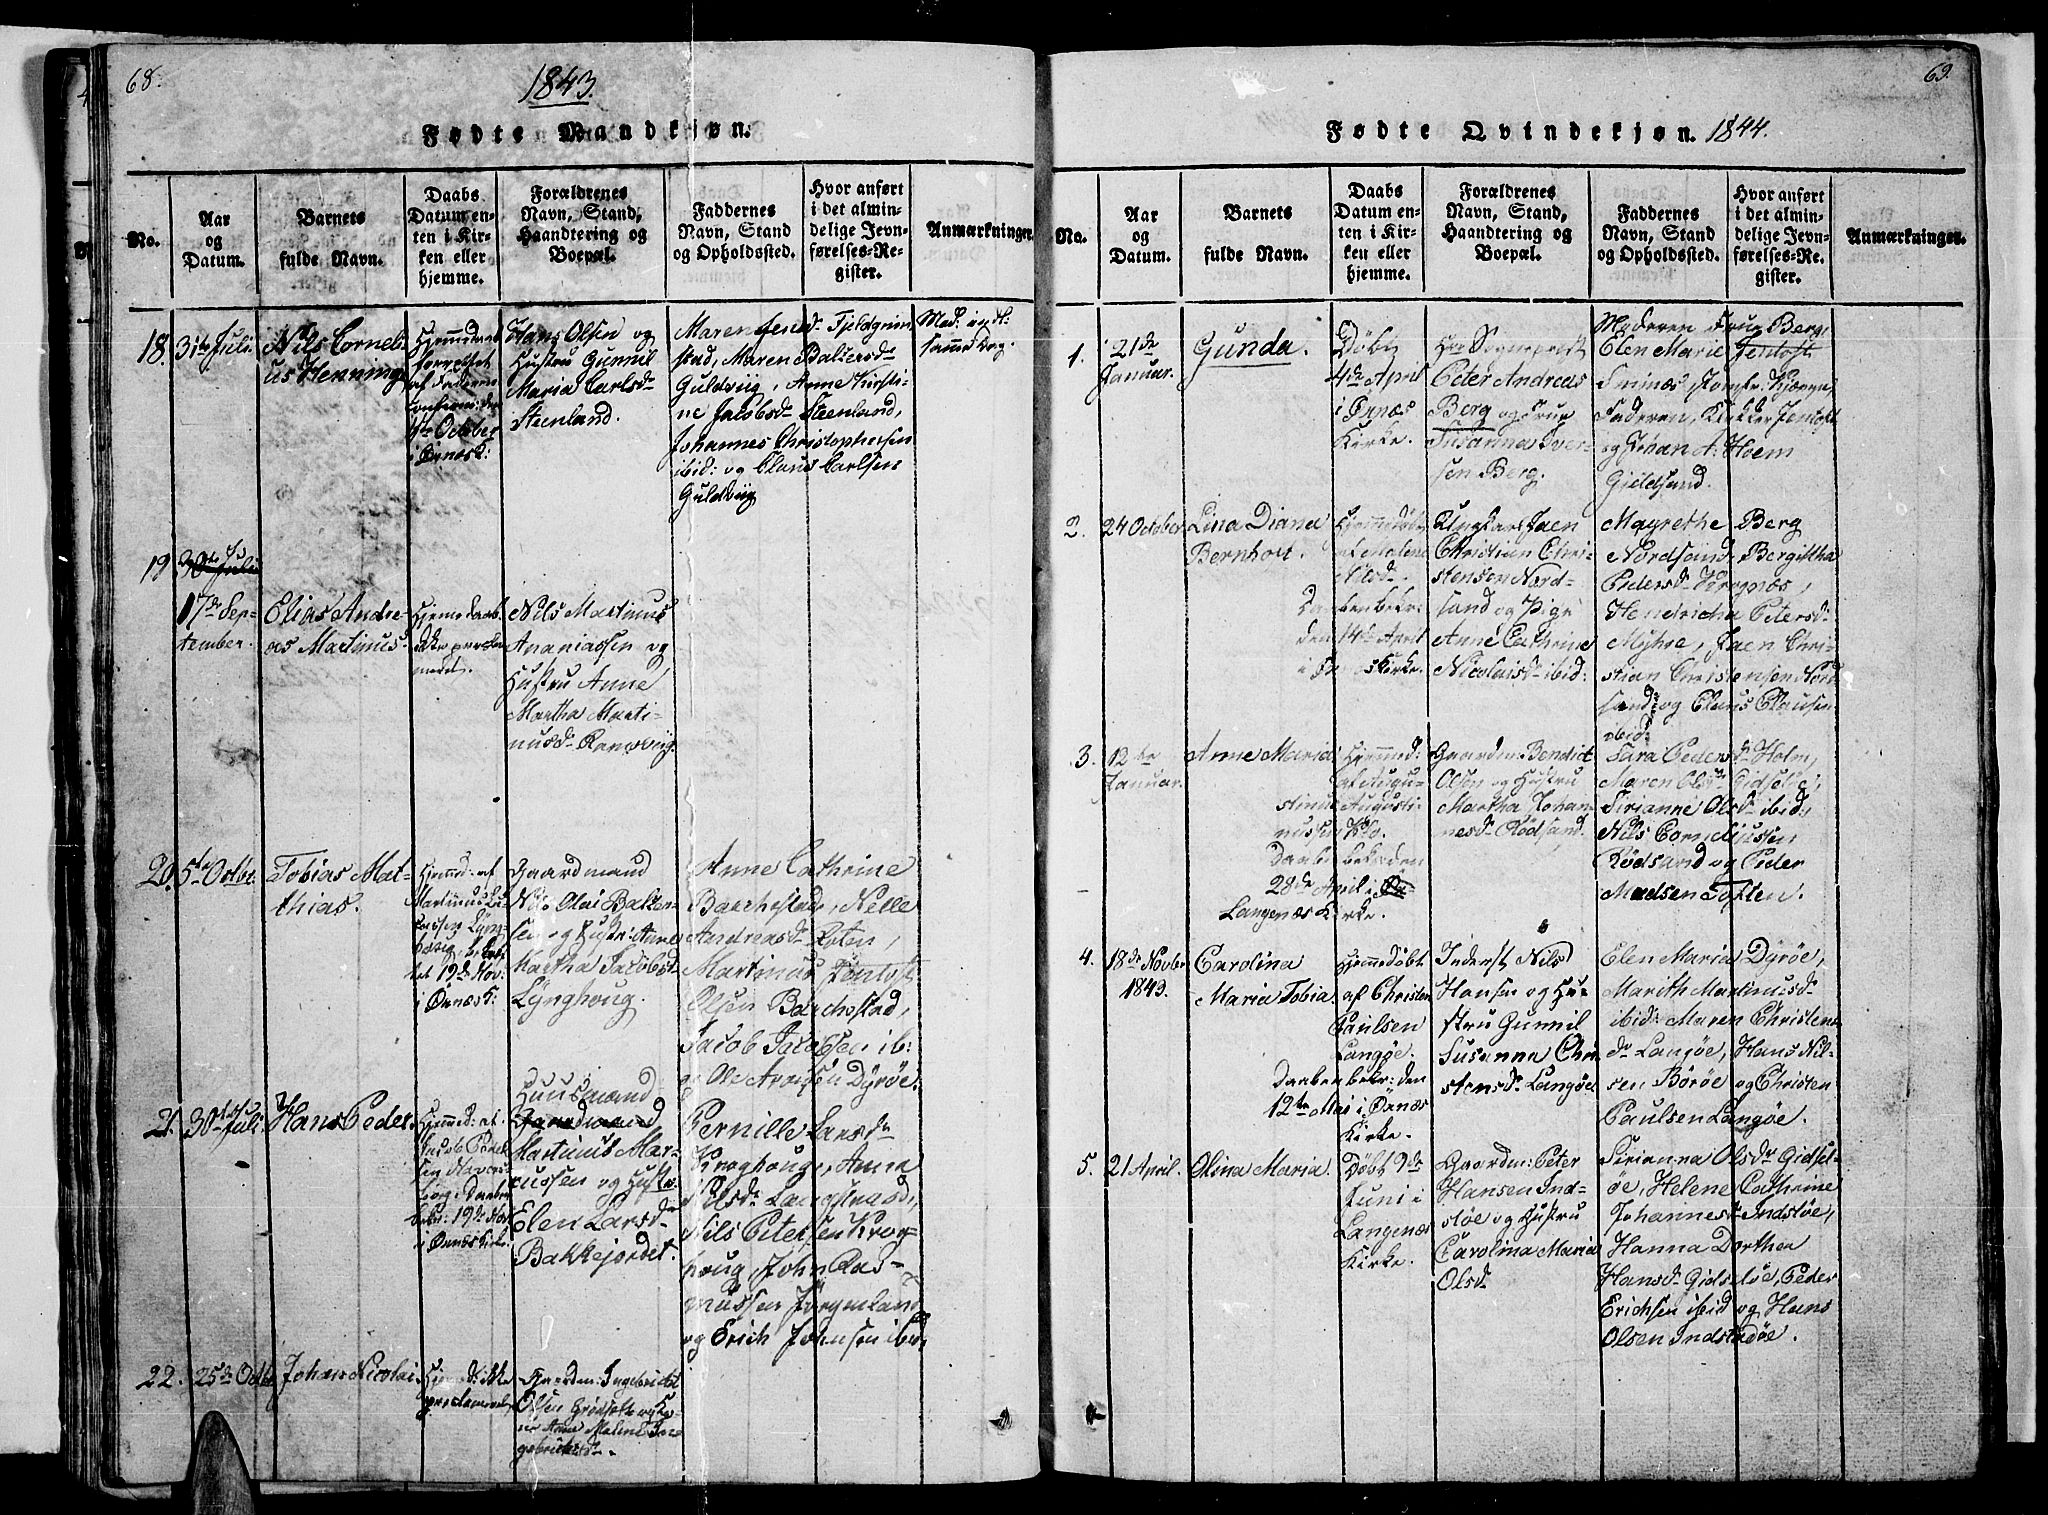 68.
1843.
Fødte Mandkjøn.
No.
Aar
og
Datum.
Barnets
fulde Navn.
Daabs
Datum en-
ten i Kir-
ken eller
hjemme.
Forældrenes
Navn, Stand,
Haandtering og
Boepæl.
Faddernes
Navn, Stand
og Opholdssted.
Hvor anført
i det almin-
delige Jevn-
førelses-Re-
gister.
Anmærkninger.
18.
31te Juli.
Nils Corneli
us Henning
Hjemmdøbt
af Faderen
4de October
i Ørnæs K:
Hans Olsen og
Hustru Gunnil
Maria Carlsd.
Steenland.
Maren Jensdr Fjeldgrim
stad, Maren Baltersdr
Guldvig, Anne Kirsti-
ne Jacobsdr Steenland,
Johannes Christophersen
ibid: og Claus Carlsen
Guldvig
19
30te Juli
17de Sep-
tember.
Elias Andre-
as Martinus.
Hjemmedaab
ikke procla
meret.
Nils Martinus
Ananiassen og
Hustru Anne
Martha Marti-
nusdr Ramsvig.
20.
5te Octbr.
Tobias Mat-
thias.
Hjemmed: af
Martinus
Lyng-
tet 19de Nov:
i Ørnæs K:
Gaardmand
Nils Olai Balter-
sen og Hustr: Anne
Martha Jacobsdr
Lynghoug.
Anne Cathrine
Barchestad, Nelle
Andreasdr Roten,
Martinus Jentoft
Olsen Barchestad,
Jacob Jacobsen ib:
og Ole Aronsen Dyrøe.
21.
30te Juli.
Hans Peder.
Hjemmed: af
Jacob Peder
sen
bekr: 19de Nov
i Ørnæs Kirke.
Huusmand
Gaardmand
Martinus Mar-
cussen og Hustr.
Elen Larsdr
Bakkejordet.
Pernille Larsdr
Kroghoug, Anna
Olsdr Langstrand,
Nils Petersen Krog-
houg, John Ras-
mussen Jørgenland
og Erich Johnsen ibid.
22.
25de Octbr
Johan Nicolai.
Hjemmd: ikke
proclameret
Gaardm: Ingebricht
Olsen Grødset og Ko-
ne Anne Malene In-
gebrichtsdr.
69.
Fødte Qvindekjøn. 1844.
No.
Aar
og
Datum.
Barnets
fulde Navn.
Daabs
Datum en-
ten i Kir-
ken eller
hjemme.
Forældrenes
Navn, Stand,
Haandtering og
Boepæl.
Faddernes
Navn, Stand
og Opholdssted.
Hvor anført
i det almin-
delige Jevn-
førelses-Re-
gister.
Anmærkninger.
1.
21de
Januar.
Gunda.
Døbt
4de April
i Ørnæs
Kirke.
Hr. Sognepræst
Peter Andreas
Berg og Frue
Susanna Iver-
sen Berg.
Moderen Frue Berg,
Elen Marie Jentoft
Faderen, Kirkker Jentoft
og Johan A: Hoem
Gieldsand.
2.
24 October
Lina Diana
Bernhoft.
Hjemmedøbt
af Malene
Nilsdr.
Daaben bekr:
den 14de April
i Ørnæs Kirke.
Ungkarl Jaen
Christian Chri-
stensen Nord-
sand og Pige
Anne Cathrine
Nicolaisdr ibid:
Magrethe Berg
Nordsand, Bergittha
Pedersdr Krognæs,
Hendricha Petersdr
Myhre, Jaen Chri-
stian Christensen Nord
sand og Claus Clausen
ibid:
3.
12te
Januar.
Anne Maria
Hjemmed:
af Augu-
stinus Augusti-
nussen Klo.
Daaben bekr. den
28de April i
Langenæs Kirke.
Gaardm: Bendict
Olsen og Hustru
Martha Johan-
nesdr Rødsand.
Sara Pedersdr Holm,
Maren Olsdr Gidsøe,
Sirianne Olsdr ibid:,
Nils Corneliussen
Rødsand og Peder
Madsen Toften.
4.
18de Novbr
1843.
Carolina
Maria Tobia.
Hjemmedøbt
af Christen
Paulsen
Langøe.
Daaben bekr: den
12te Mai i Ørnæs
Kirke.
Inderst Nils
Hansen og Hu-
stru Gunnil
Susanna Chri-
stensdr Langøe.
Elen Maria Dyrøe,
Marith Martinusdr
ibid: Maren Christens
dr Langøe, Hans Nil-
sen Børøe og Christen
Paulsen Langøe.
5.
21 April.
Olina Maria.
Døbt 9de
Juni i
Langenæs
Kirke.
Gaardm: Peter
Hansen Ind-
støe og Hustru
Carolina Maria
Olsdr
Sirianna Olsdr Gids-
øe, Helene Cathrine
Johannesdr Indstøe,
Hanna Dorthea
Hansdr Gidsøe, Peder
Erichsen ibid og Hans
Olsen Indstadøe.